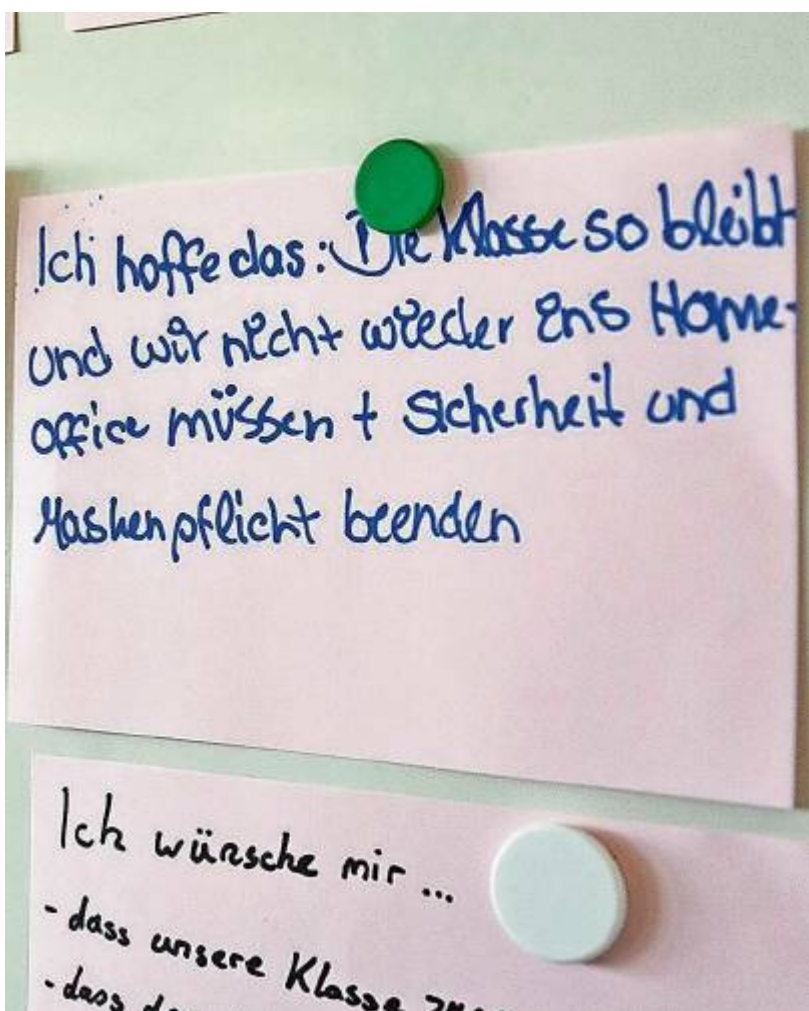 Ich hoffe das: Die Klasse so bleibt
und wir nicht wieder ins Home-
office müssen + Sicherheit und
Maskenpflicht beenden
Ich wünsche mir ...
- dass unsere Klasse
- dass